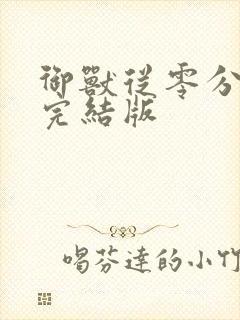 御獸從零分
完結版
喝芬達的小竹